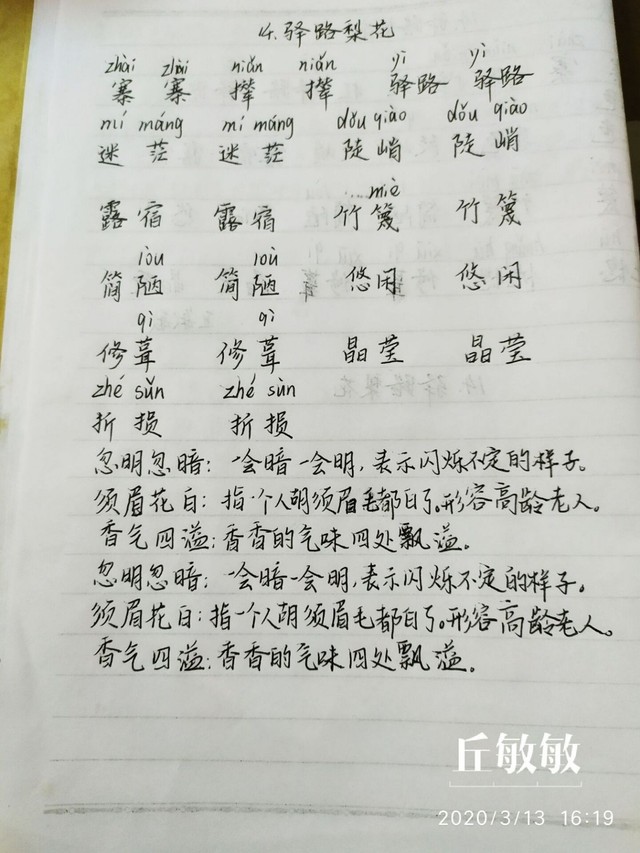 14.驿路梨花
zhài zhài niǎn niǎn yì yì
寨 寨 撵 撵 驿路 驿路
mí máng mí máng dǒu qiào dǒu qiào
迷茫 迷茫 陡峭 陡峭
miè
露宿 露宿 竹篾 竹篾
lòu lòu
简陋 简陋 悠闲 悠闲
qì qì
修葺 修葺 晶莹 晶莹
zhé sǔn zhé sǔn
折损 折损
忽明忽暗:一会暗一会明,表示闪烁不定的样子。
须眉花白:指一个人胡须眉毛都白了。形容高龄老人。
香气四溢:香香的气味四处飘溢。
忽明忽暗:一会暗一会明,表示闪烁不定的样子。
须眉花白:指一个人胡须眉毛都白了。形容高龄老人。
香气四溢:香香的气味四处飘溢。
丘敏敏
2020/3/13 16:19